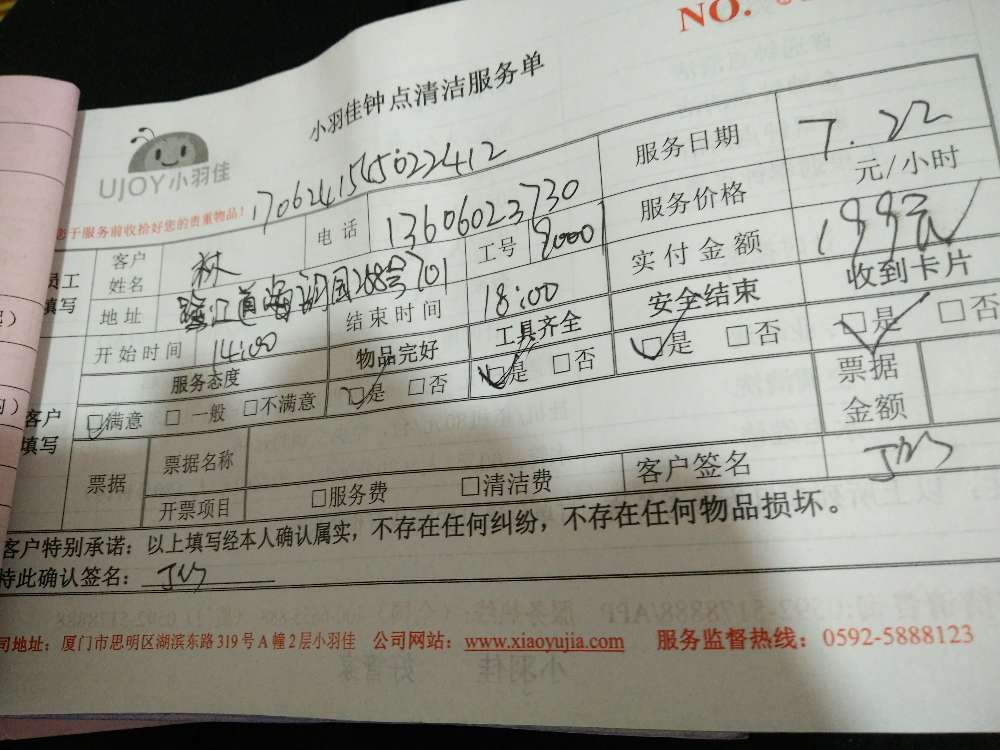 NO.
小羽佳钟点清洁服务单
UJOY小羽佳
于服务前收拾好您的贵重物品!
170624154502241​2
员工填写
客户姓名 林
电话 13606023730
服务日期 7.22
地址 268号701
工号 90001
服务价格 元/小时
开始时间 14:00
结束时间 18:00
实付金额 199元
客户填写
服务态度 物品完好 工具齐全 安全结束 收到卡片
□满意 □一般 □不满意 □是 □否 □是 □否 □是 □否 □是 □否
票据 票据名称 票据金额
开票项目 □服务费 □清洁费 客户签名
客户特别承诺：以上填写经本人确认属实，不存在任何纠纷，不存在任何物品损坏。
特此确认签名：
司地址：厦门市思明区湖滨东路319号A幢2层小羽佳 公司网站：www.xiaoyujia.com 服务监督热线：0592-5888123